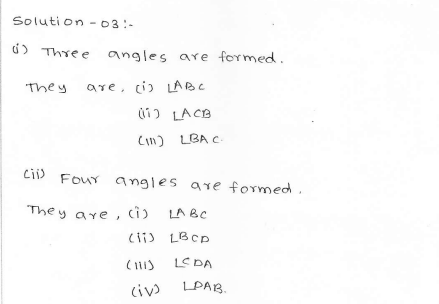 Solution - 03:-
(i) Three angles are formed.
They are, (i) ∠ABC
(ii) ∠ACB
(iii) ∠BAC.
(ii) Four angles are formed.
They are, (i) ∠ABC
(ii) ∠BCD
(iii) ∠CDA
(iv) ∠DAB.